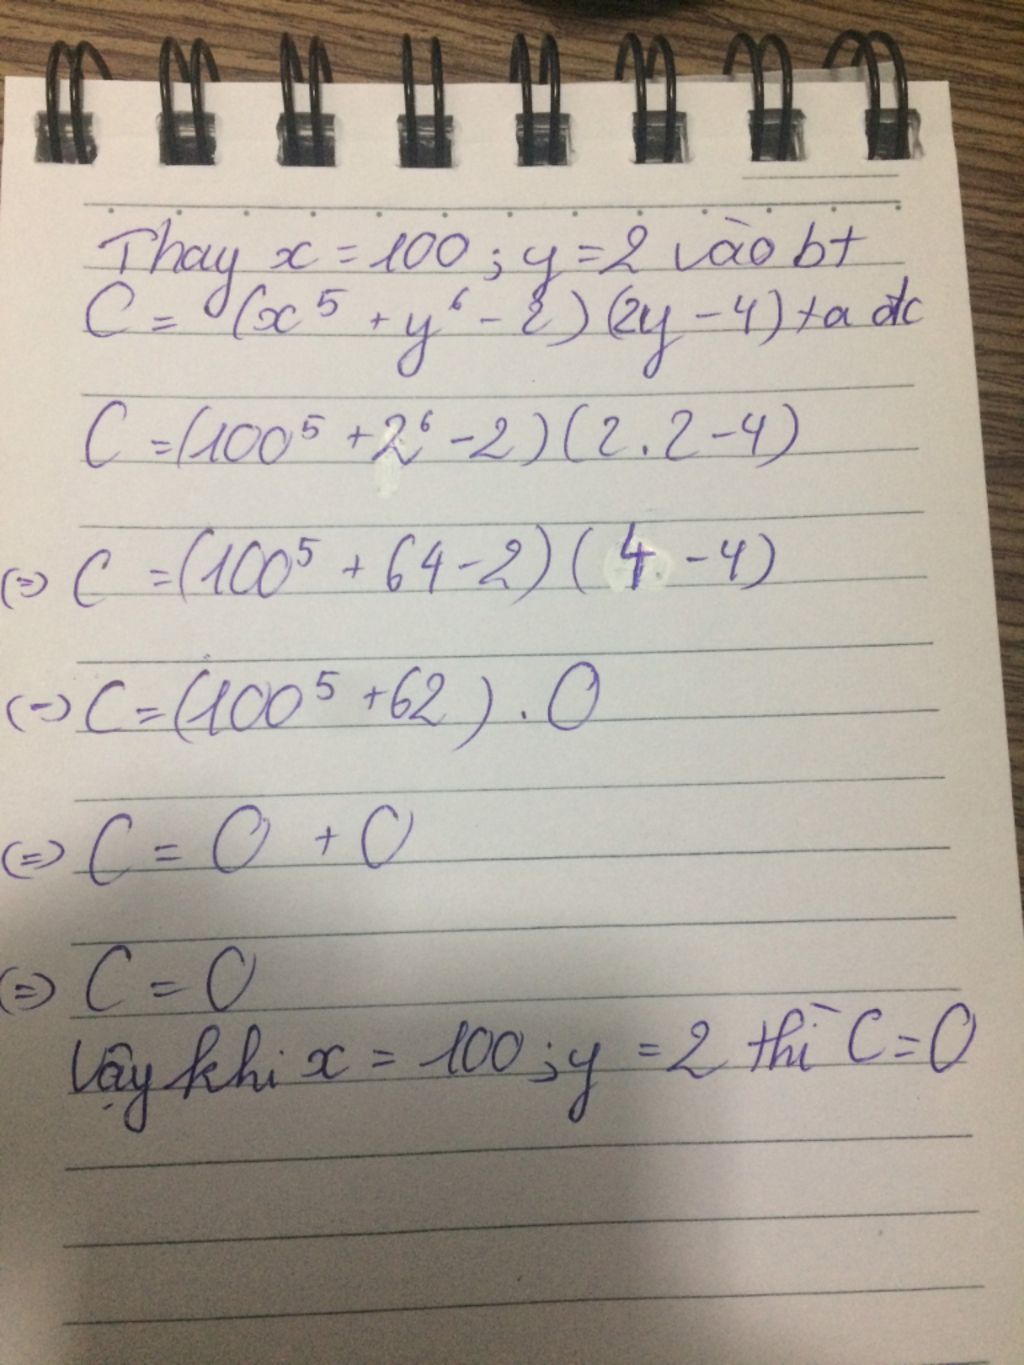 Thay x = 100 ; y = 2 vào bt
C = (x⁵ + y⁶ - 2)(2y - 4) ta đc
C = (100⁵ + 2⁶ - 2)(2 . 2 - 4)
(=) C = (100⁵ + 64 - 2)(4 - 4)
(=) C = (100⁵ + 62) . 0
(=) C = 0 + 0
(=) C = 0
Vậy khi x = 100 ; y = 2 thì C = 0